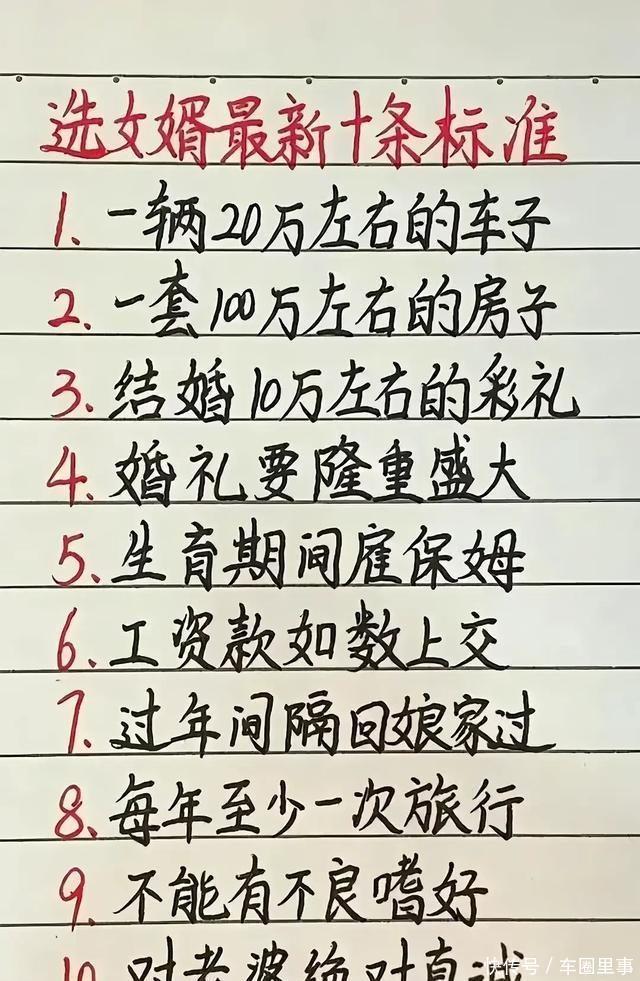 选女婿最新十条标准
1. 一辆20万左右的车子
2. 一套100万左右的房子
3. 结婚10万左右的彩礼
4. 婚礼要隆重盛大
5. 生育期间雇保姆
6. 工资款如数上交
7. 过年间隔回娘家过
8. 每年至少一次旅行
9. 不能有不良嗜好
10. 对老婆绝对真诚
快传号／车圈里事